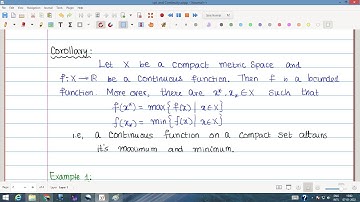 Corollary:
Let X be a compact metric space and
f: X→R be a continuous function. Then f is a bounded
function. More over, there are x*, x_* ∈ X such that
f(x*) = max{f(x) | x∈X}
f(x_*) = min{f(x) | x∈X}
i.e, a continuous function on a compact set attains
it's maximum and minimum.
Example 1: